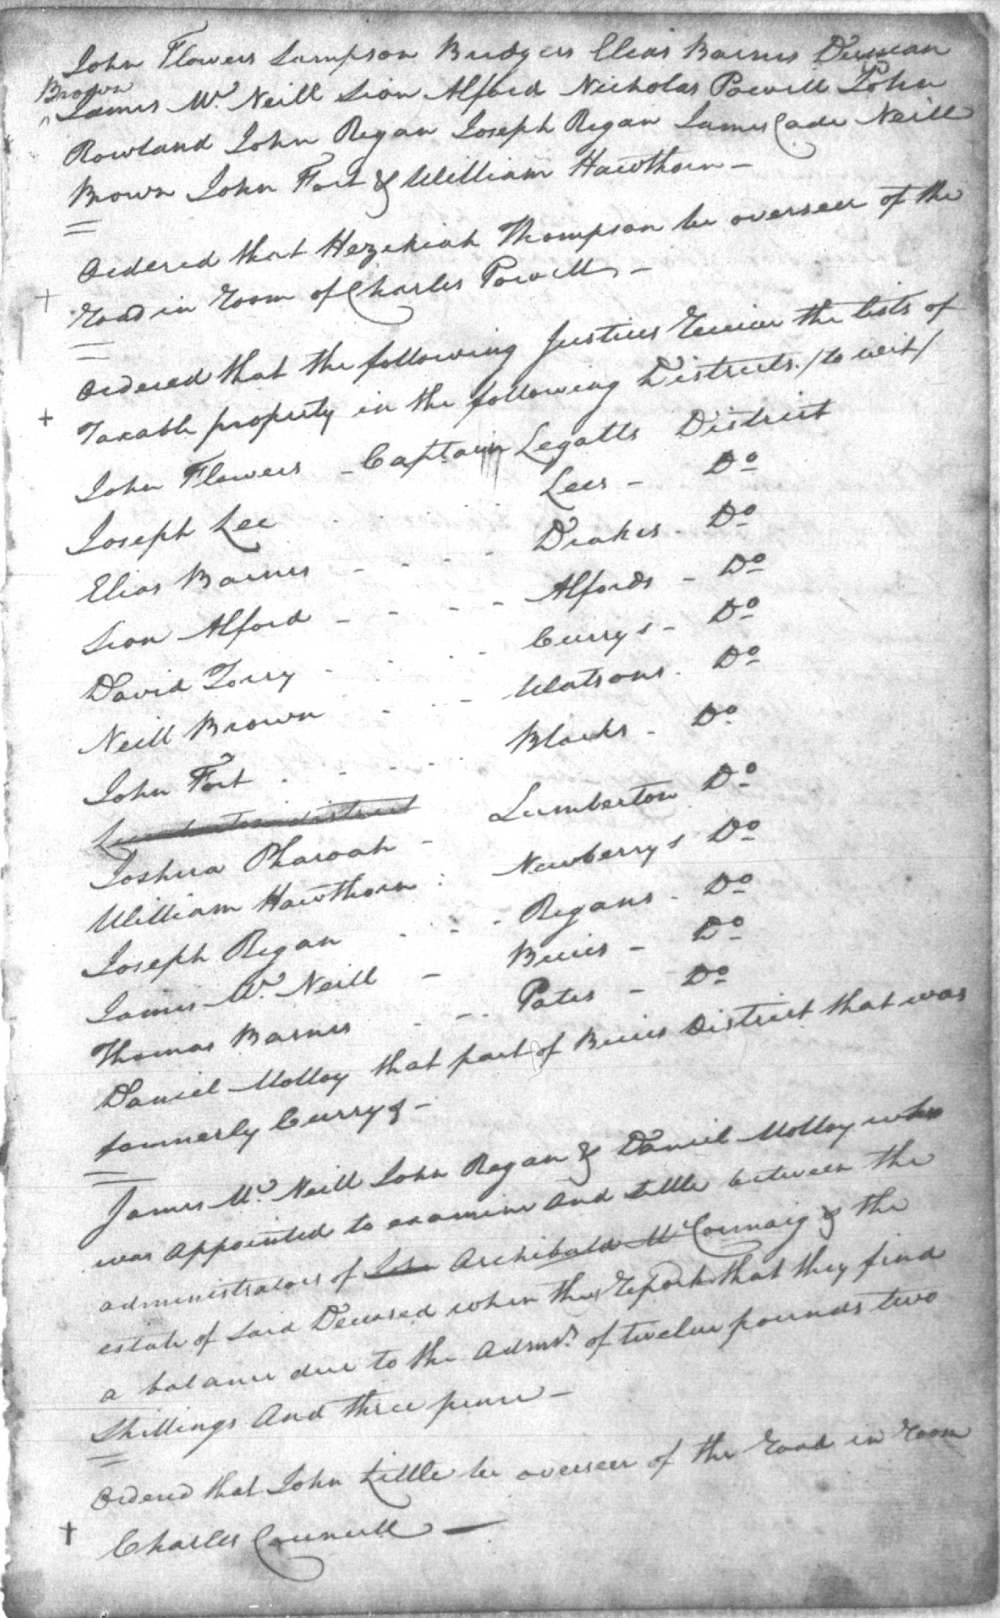 John Flowers Sampson Bridgers Elias Barnes Duncan
Brown
^ James Mc. Neill Sion Alford Nicholas Powell John
Rowland John Regan Joseph Regan James Cade Neill
Brown John Fort & William Hawthorn —
Ordered that Hezekiah Thompson be overseer of the
Road in room of Charles Powell —
Ordered that the following Justices Receive the lists of
Taxable property in the following Districts. /to wit/
John Flowers - Captain Legatts District
Joseph Lee . . . . Lees - Do
Elias Barnes - . . - Drakes . Do
Sion Alford - - - - Alfords - Do
David Torry . . . . Currys - Do
Neill Brown . . - Watsons . Do
John Fort . . . . Blacks - Do
Lumberton district
Joshua Pharoah - Lumberton Do
William Hawthorn : Newberrys Do
Joseph Regan . . . Regans . Do
James Mc. Neill - Buies - Do
Thomas Barnes . . . Pates - Do
Daniel Molloy that part of Buies District that was
formerly Currys —
James Mc. Neill John Regan & Daniel Molloy who
was appointed to examine and settle between the
administrators of Archibald McCormaig & the
estate of said Deceased when they Report that they find
a balance due to the Admrs. of twelve pounds two
Shillings And three pence —
Ordered that John Little be overseer of the Road in room
Charles Councill —